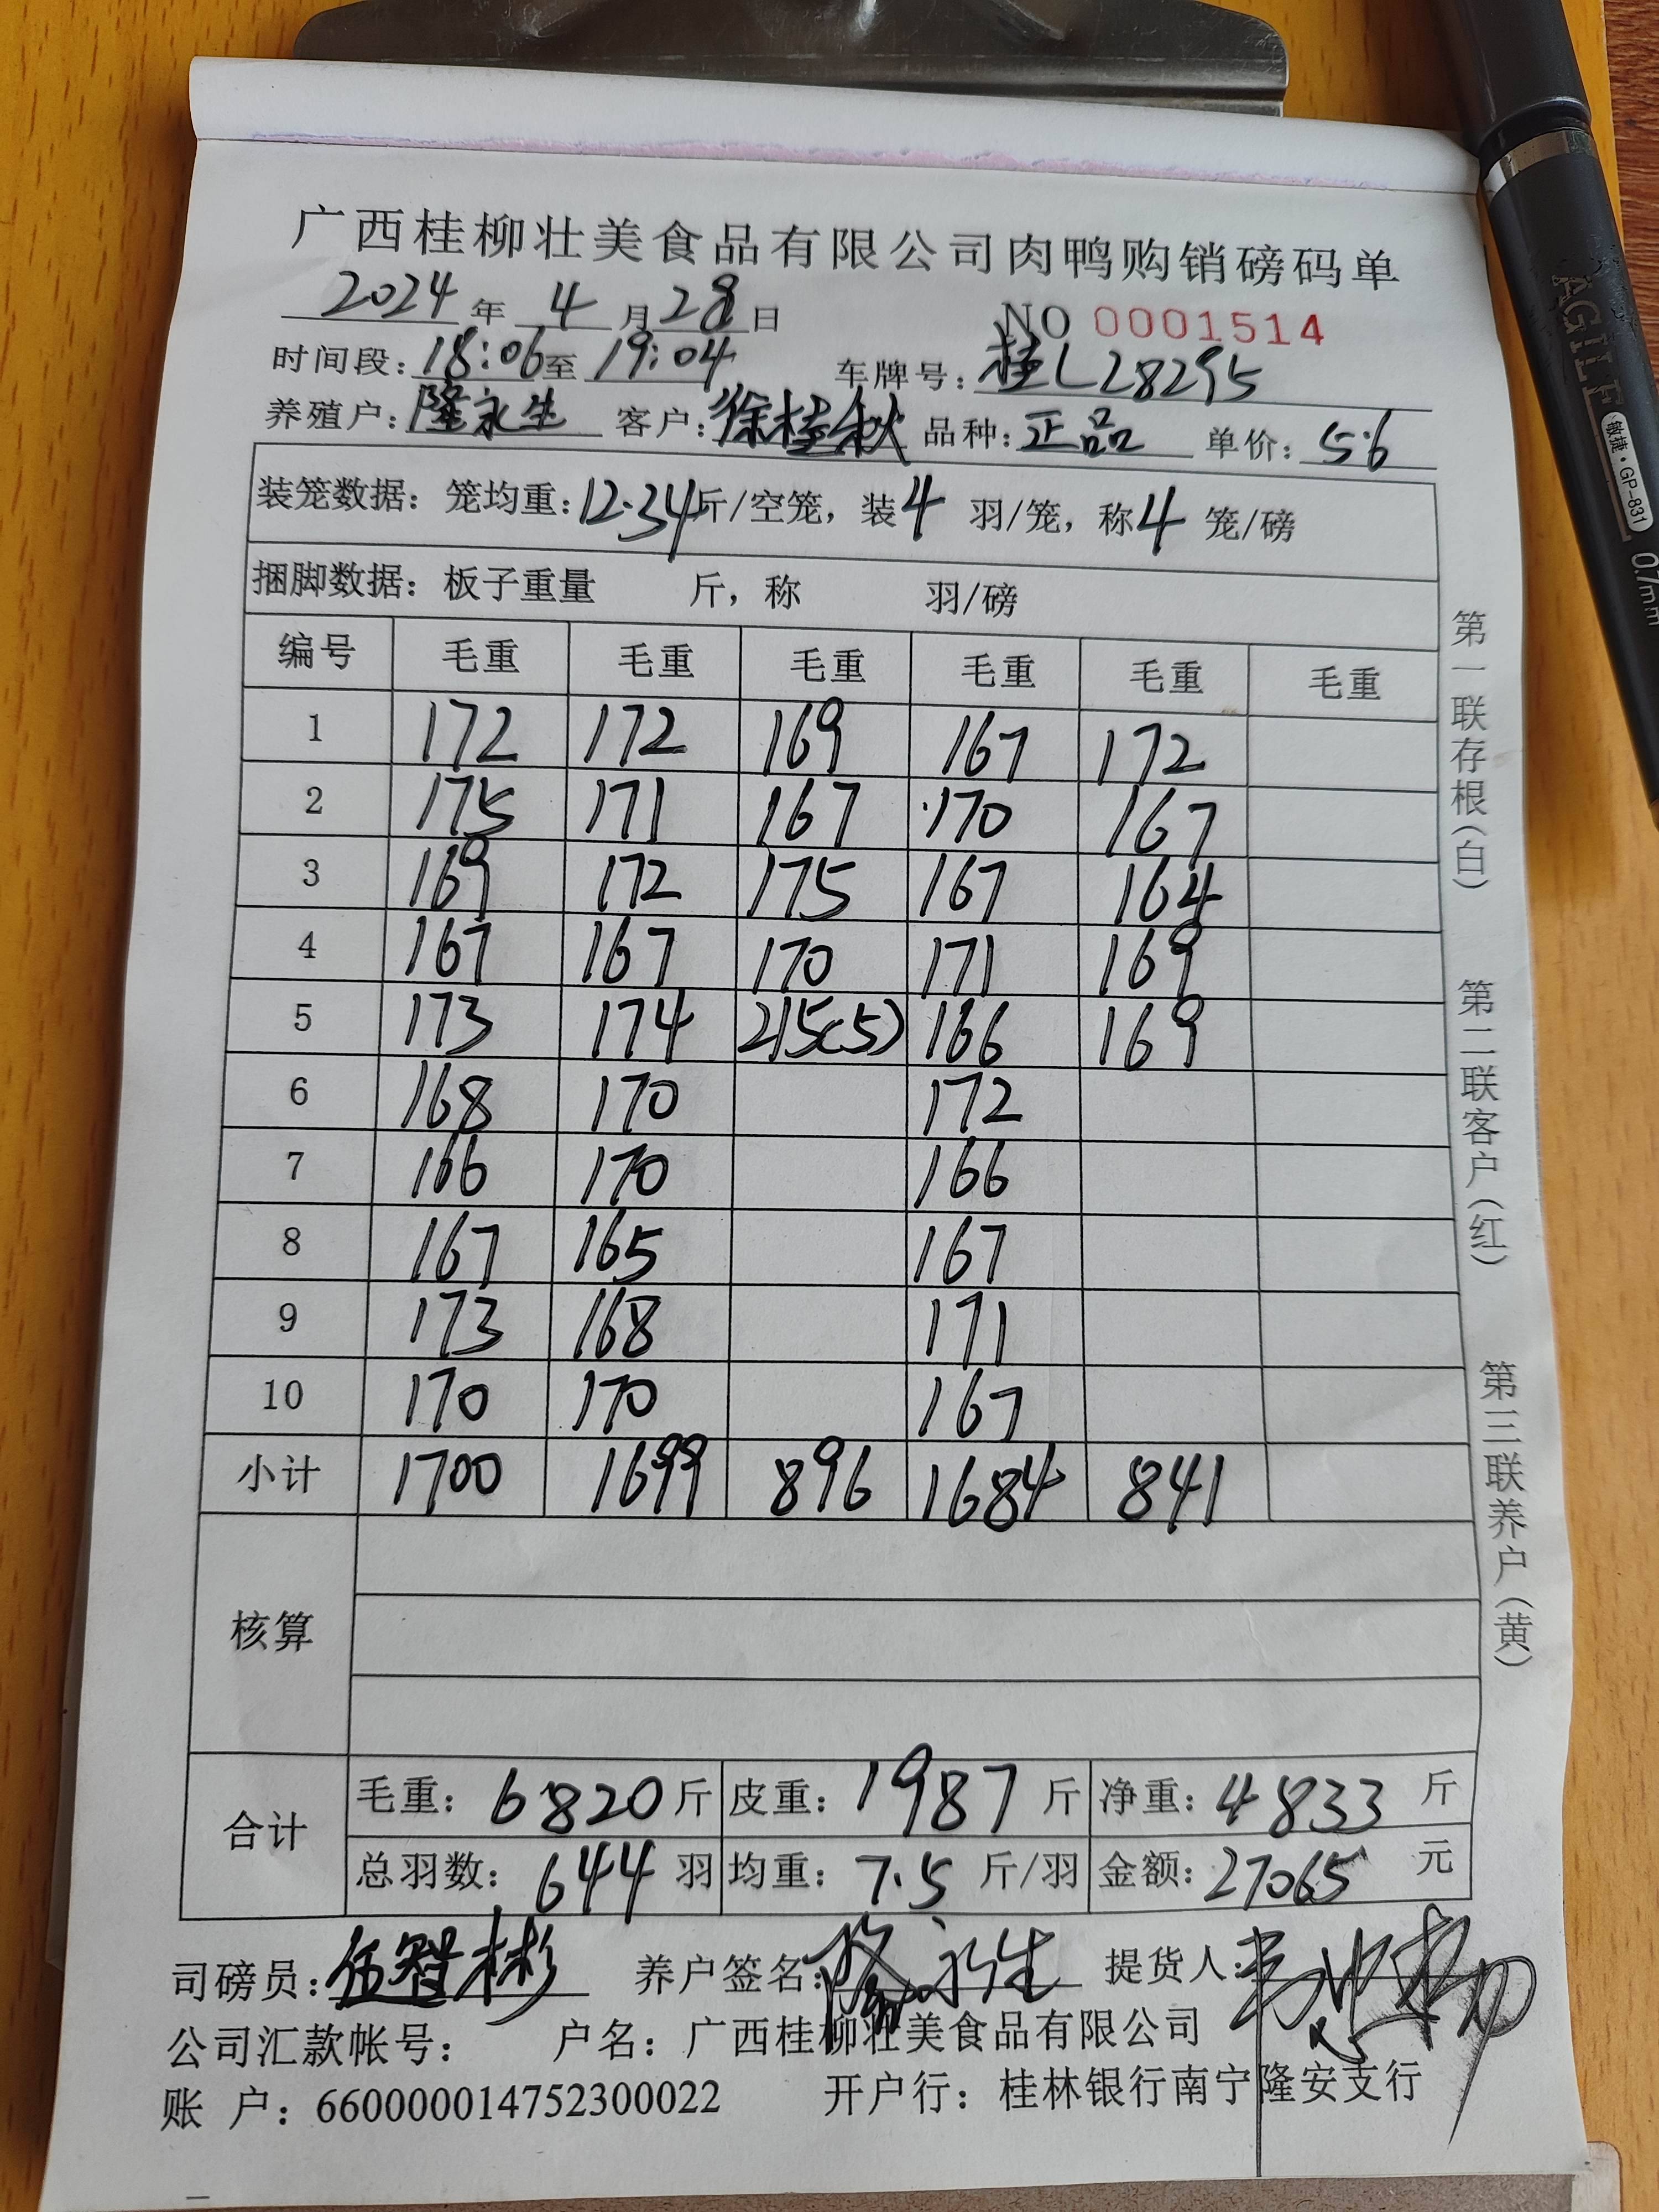 广西桂柳壮美食品有限公司肉鸭购销磅码单
2024 年 4 月 28 日 NO 0001514
时间段: 18:06 至 19:04 车牌号: 桂L28295
养殖户: 隆永生 客户: 徐桂秋 品种: 正品 单价: 5.6
装笼数据: 笼均重: 12.34 斤/空笼, 装 4 羽/笼, 称 4 笼/磅
捆脚数据: 板子重量 斤, 称 羽/磅
编号 毛重 毛重 毛重 毛重 毛重 毛重
1 172 172 169 167 172
2 175 171 167 170 167
3 169 172 175 167 164
4 167 167 170 171 169
5 173 174 215(5) 166 169
6 168 170 172
7 166 170 166
8 167 165 167
9 173 168 171
10 170 170 167
小计 1700 1699 896 1684 841
核算
合计
毛重: 6820 斤 皮重: 1987 斤 净重: 4833 斤
总羽数: 644 羽 均重: 7.5 斤/羽 金额: 27065 元
司磅员: 伍智彬 养户签名: 隆永生 提货人:
公司汇款帐号: 户名: 广西桂柳壮美食品有限公司
账 户: 660000014752300022 开户行: 桂林银行南宁隆安支行
第一联存根(白) 第二联客户(红) 第三联养户(黄)
AGILE
敏捷·GP-831
0.7mm